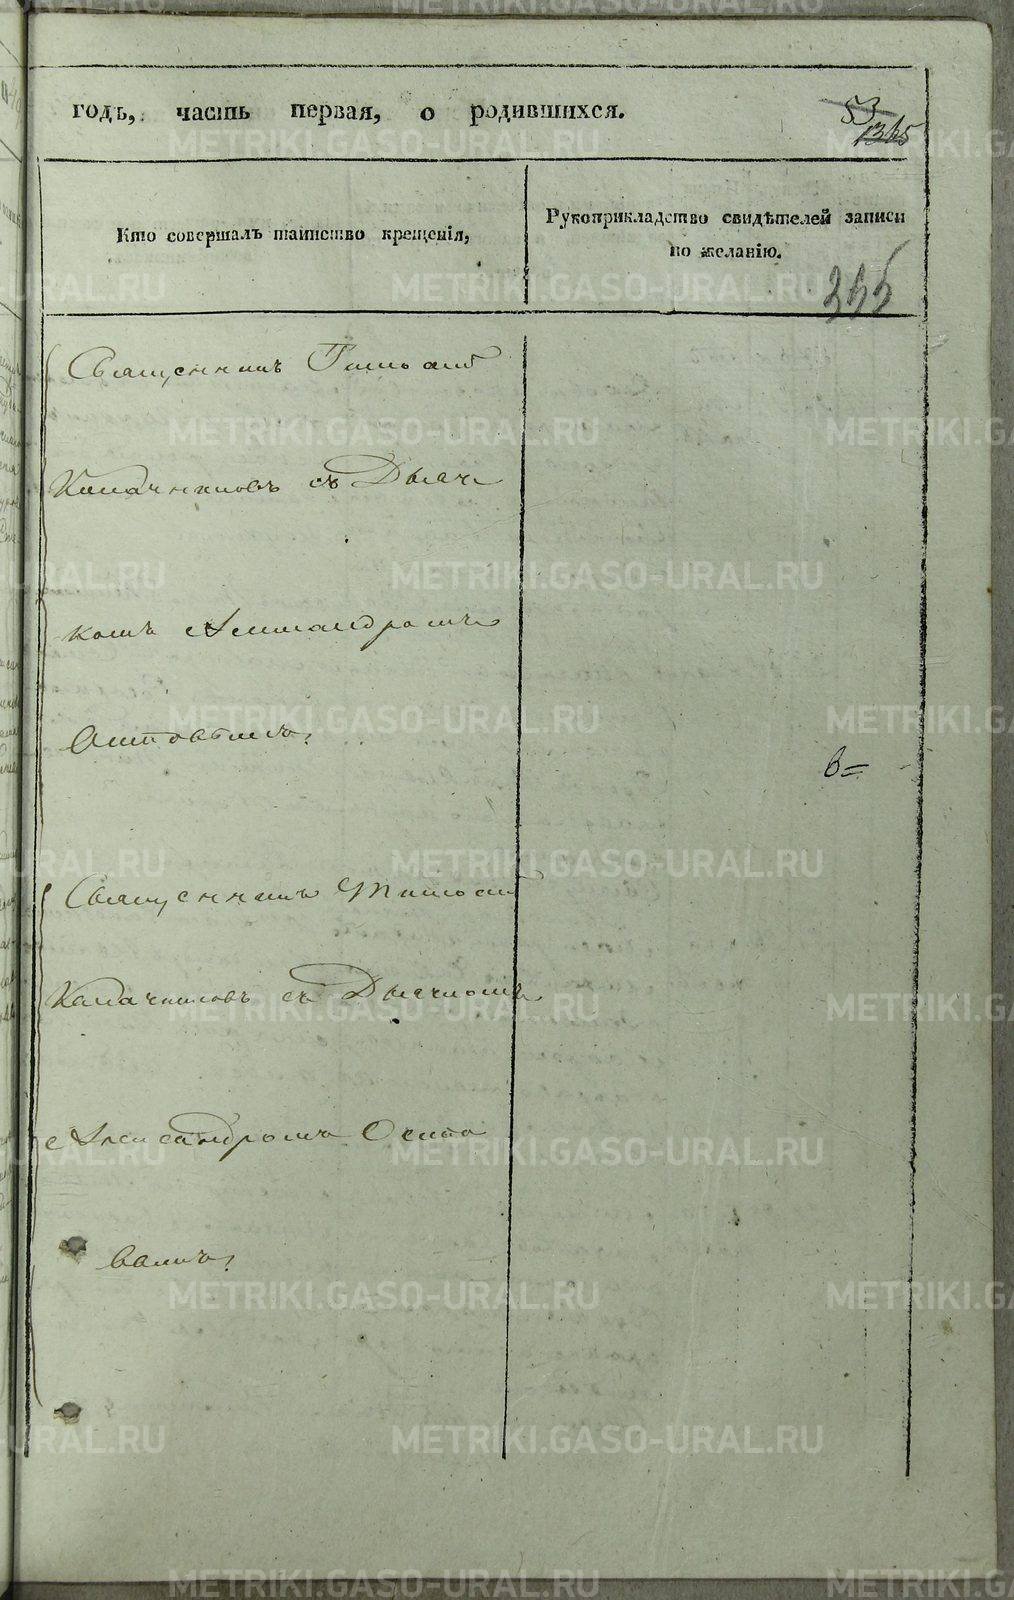 годъ, часть первая, о родившихся.
53
1365
Кто совершалъ таинство крещенія,
Рукоприкладство свидѣтелей записи
по желанію.
355
Священникъ
Калачниковъ съ Дьяч
комъ Александромъ
Священникъ
Калачниковъ съ Дьячкомъ
Александромъ Осипо
вымъ.
в=
METRIKI.GASO-URAL.RU